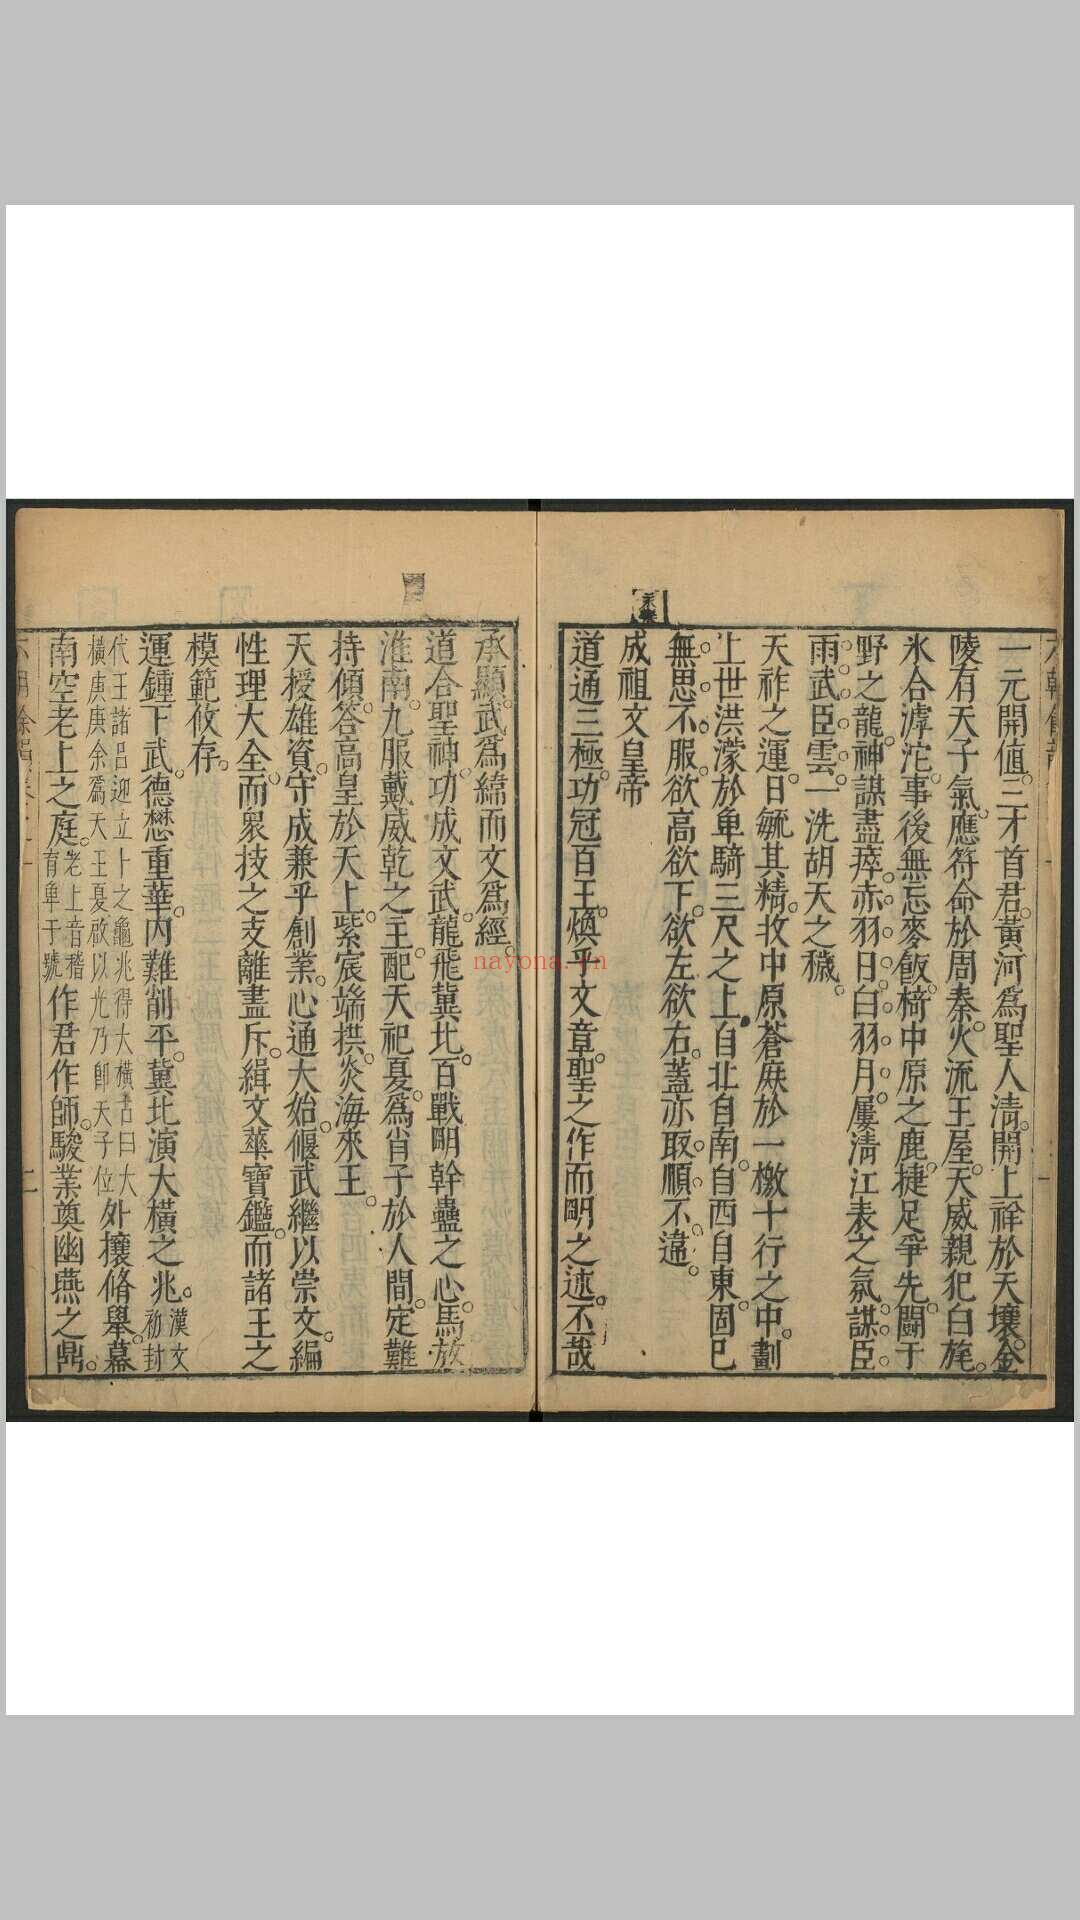 一元開值。三才首君。黃河爲聖人淸。開上祥於天壤。金
陵有天子氣。應符命於周秦。火流王屋。天威親犯白旄。
氷合滹沱。事後無忘麥飯。椅中原之鹿。捷足爭先。鬭于
野之龍。神謀盡瘁。赤羽日。白羽月。屢淸江表之氛。謀臣
雨。武臣雲。一洗胡天之穢。
天祚之運。日毓其精。收中原蒼麻於一檄十行之中。劃
上世洪濛於單騎三尺之上。自北自南。自西自東。固已
無思不服。欲高欲下。欲左欲右。蓋亦取順不違。
永樂
成祖文皇帝
道通三極。功冠百王。煥乎文章。聖之作而明之述。丕哉
承顯。武爲緯而文爲經。
道合聖神。功成文武。龍飛冀北。百戰明幹蠱之心。馬放
淮南。九服戴威乾之主。配天祀夏。爲肖子於人間。定難
持傾。答高皇於天上。紫宸端拱。炎海來王。
天授雄資。守成兼乎創業。心通大始。偃武繼以崇文。編
性理大全。而衆技之支離盡斥。緝文華寶鑑。而諸王之
模範攸存。
運鍾下武。德懋重華。內難削平。冀北演大橫之兆。漢文初封
代王諸呂迎立卜之龜兆得大橫占曰大橫庚庚余爲天王夏啟以光乃卽天子位外攘脩舉。幕
南空老上之庭。老上音稽育單于號作君作師。駿業奠幽燕之鼎。
nayona.cn